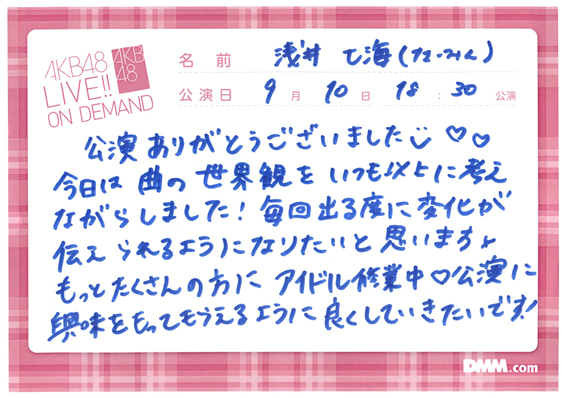 AKB48
LIVE!!
ON DEMAND
AKB
48
名 前 浅井 七海(なーみん)
公演日 9 月 10 日 18 : 30 公演
公演ありがとうございました♡♡
今日は 曲の世界観をいつも以上に考え
ながらしました!毎回出る度に変化が
伝えられるようになりたいと思います♪
もっとたくさんの方に アイドル修業中♡公演に
興味をもってもらえるように良くしていきたいです!
DMM.com